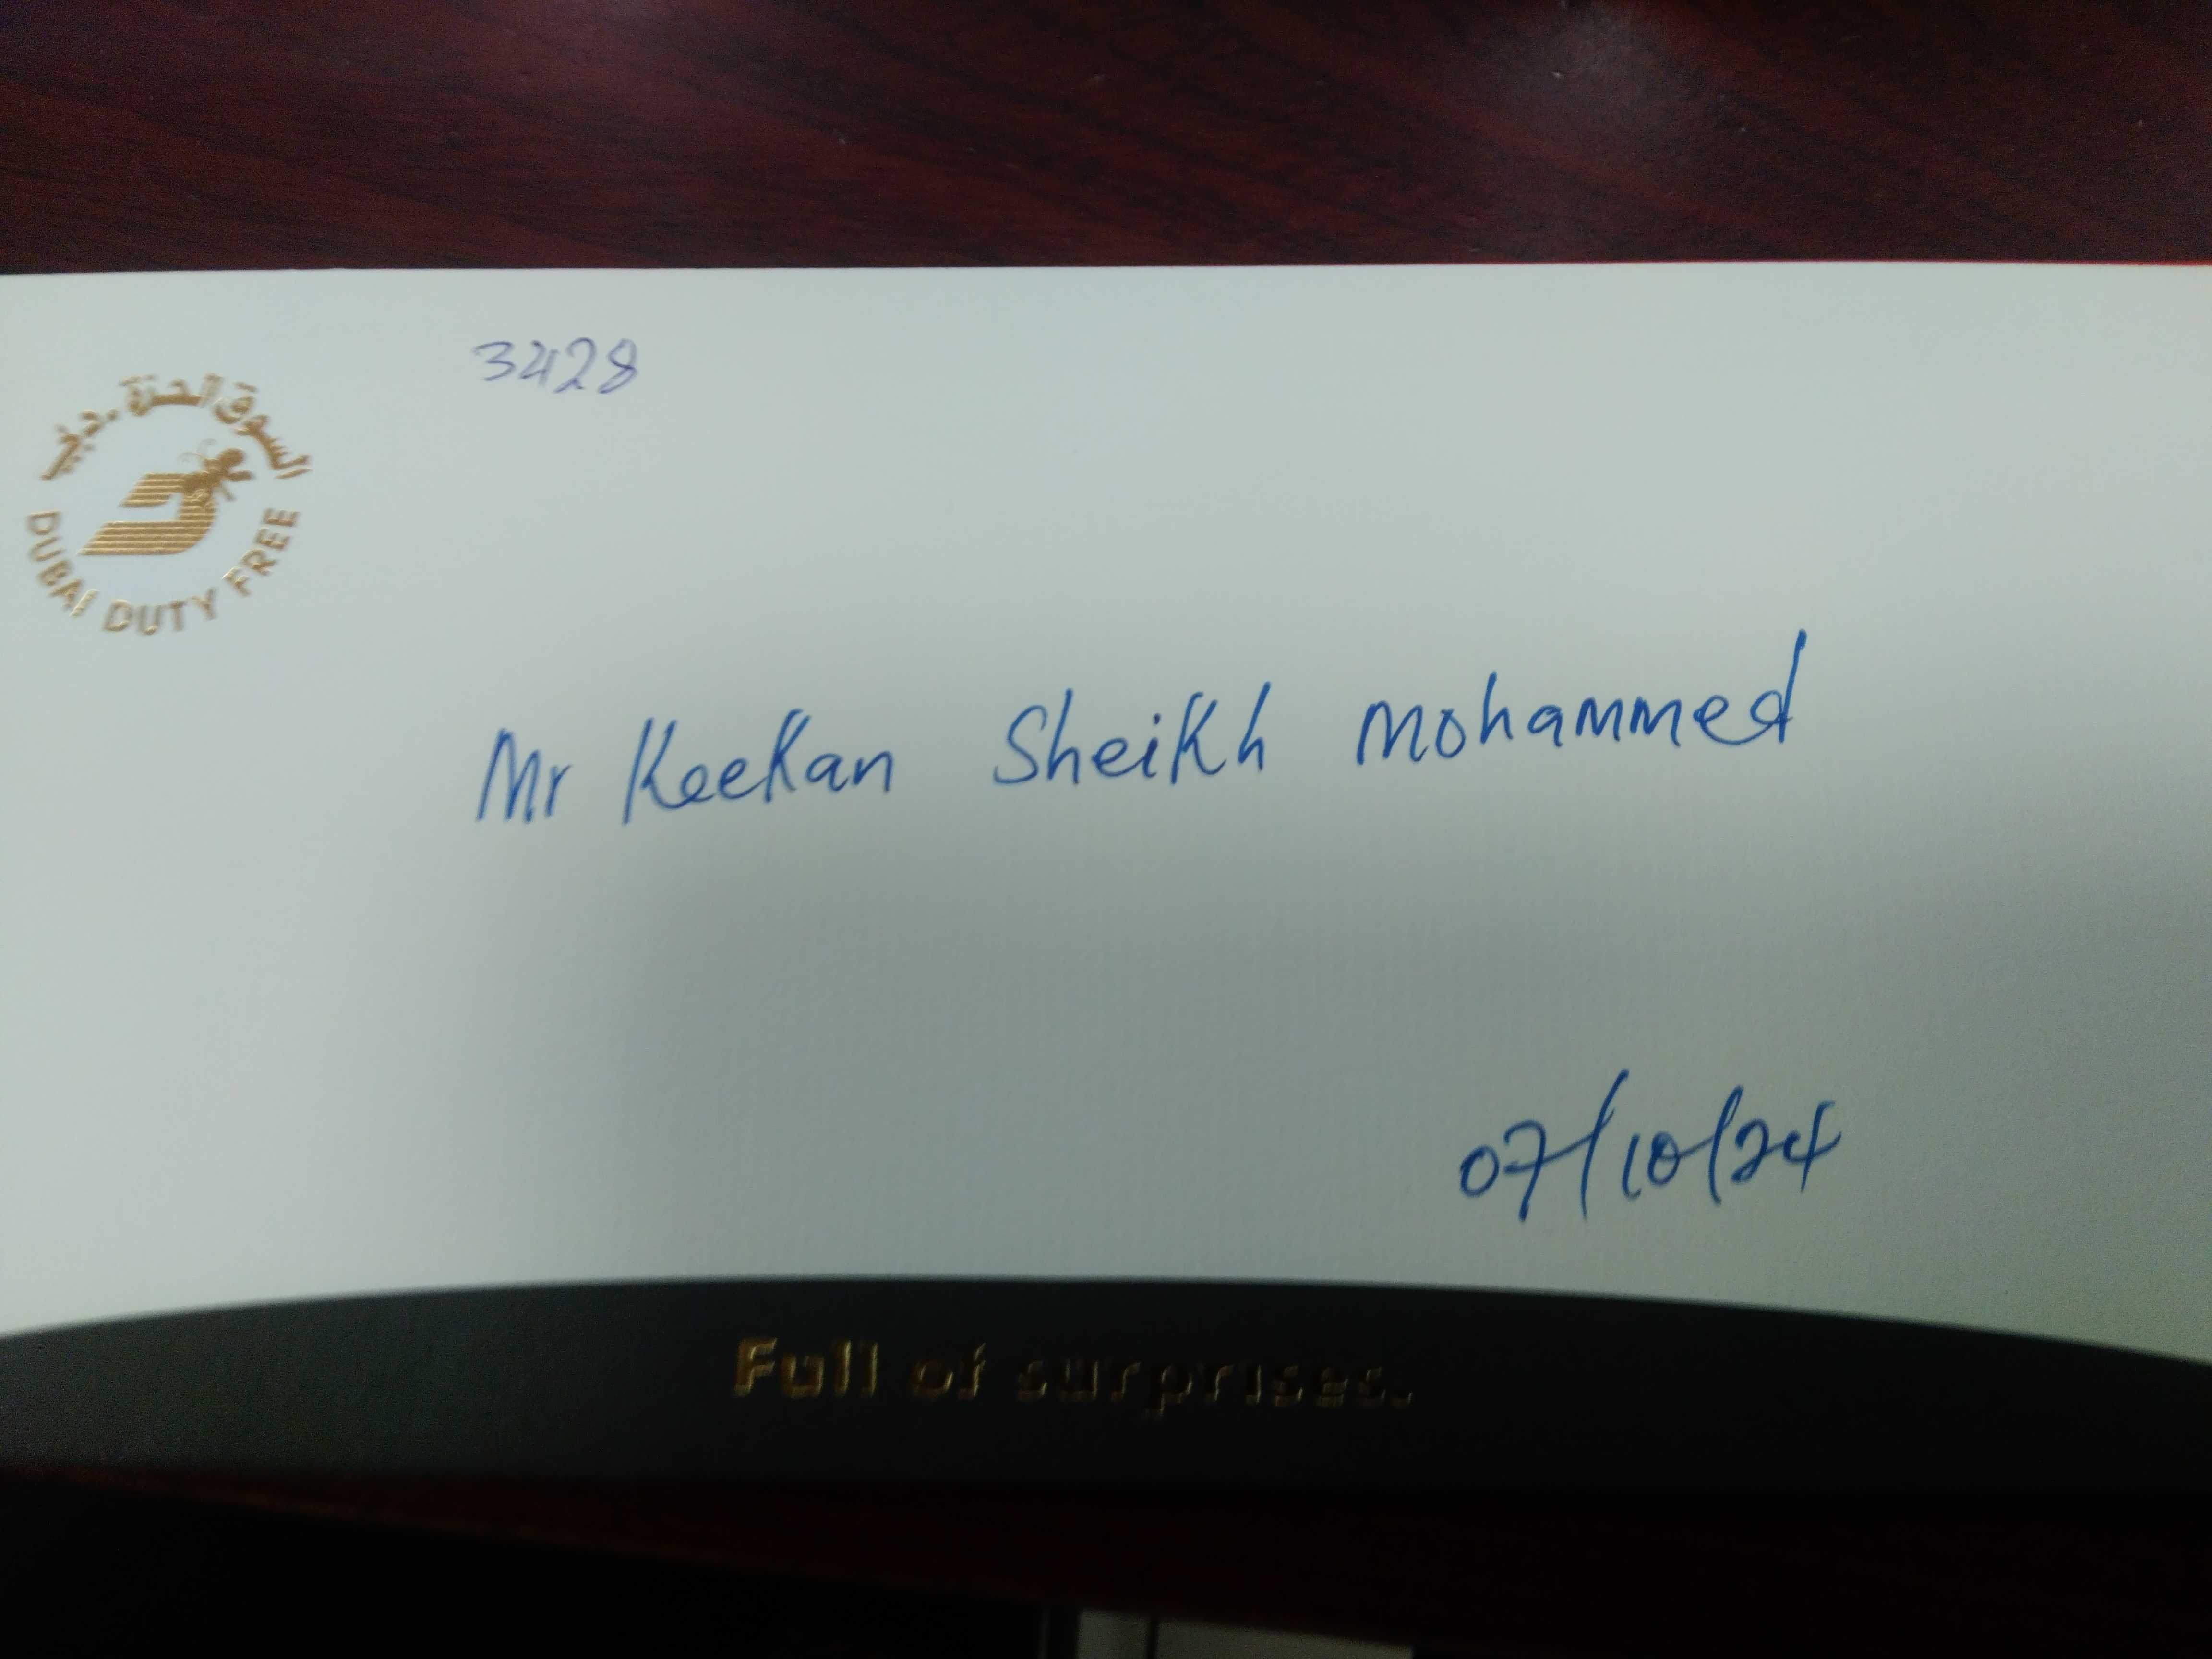 3428
السوق الحرة . دبي
DUBAI DUTY FREE
Mr Keekan Sheikh Mohammed
07/10/24
Full of surprises.